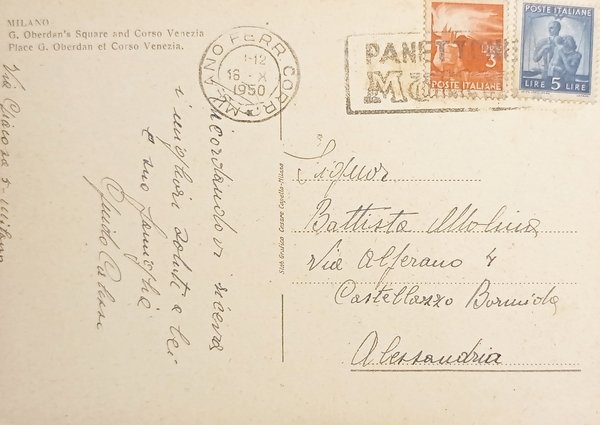 MILANO
G. Oberdan's Square and Corso Venezia
Place G. Oberdan et Corso Venezia.
MILANO FERR. CORR.
-12
16 - X
1950
PANETTONE
M
Lire
3
POSTE ITALIANE
POSTE ITALIANE
LIRE 5 LIRE
Via Giacosa 5 Milano
Ricordando vi riceva
i migliori saluti a lei
e suo famiglia
Guido
Stab. Grafico Cesare Capello - Milano
Signor
Battista Molina
Via Alferano 4
Castellazzo Bormida
Alessandria